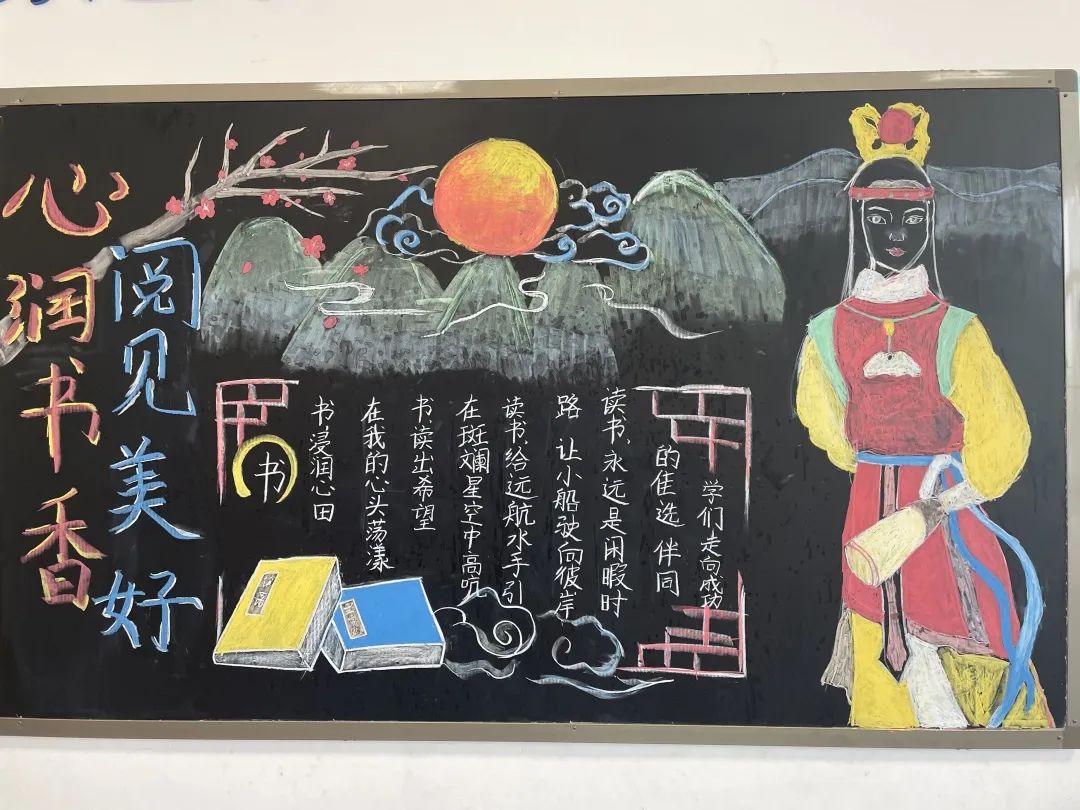 心润书香
阅见美好
书
书浸润心田
在我的心头荡漾
书读出希望
在斑斓星空中高叩
读书、给远航水手引
路 让小船驶向彼岸
读书、永远是闲暇时
的佳选 伴同
学们走向成功